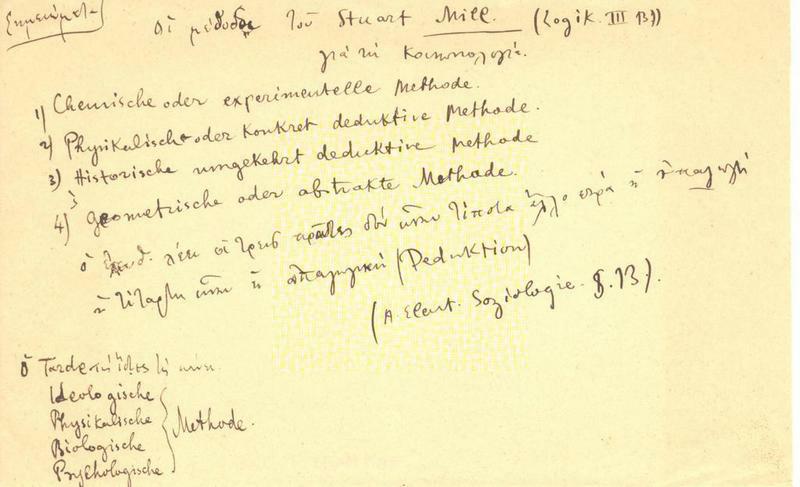 Σημειώματα
οἱ μέθοδες τοῦ Stuart Mill. (Logik. III B))
γιὰ τὴ Κοινωνιολογία.
1) Chemische oder experimentelle Methode.
2) Physikalische oder konkret deduktive Methode.
3) Historische umgekehrt deduktive Methode
4) geometrische oder abstrakte Methode.
ὁ λέει οἱ τρεῖς πρῶτες δὲν εἶναι τίποτα ἄλλο παρὰ ἡ ἐπαγωγὴ
ἡ τέταρτη εἶναι ἡ ἀπαγωγικὴ (Deduktion)
(A. Eleut. Soziologie. S. 13).
ὁ Tarde
Ideologische
Physikalische
Biologische
Psychologische
Methode.